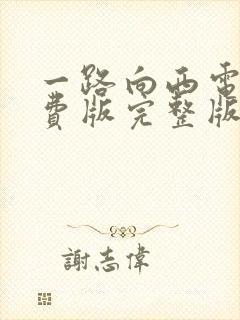 一路向西電
費版完整版
謝志偉